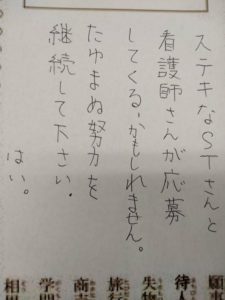 ステキなSTさんと
看護師さんが応募
してくる、かもしれません。
たゆまぬ努力を
継続して下さい。
はい。
願事
待人
失物
旅行
商売
学問
相場